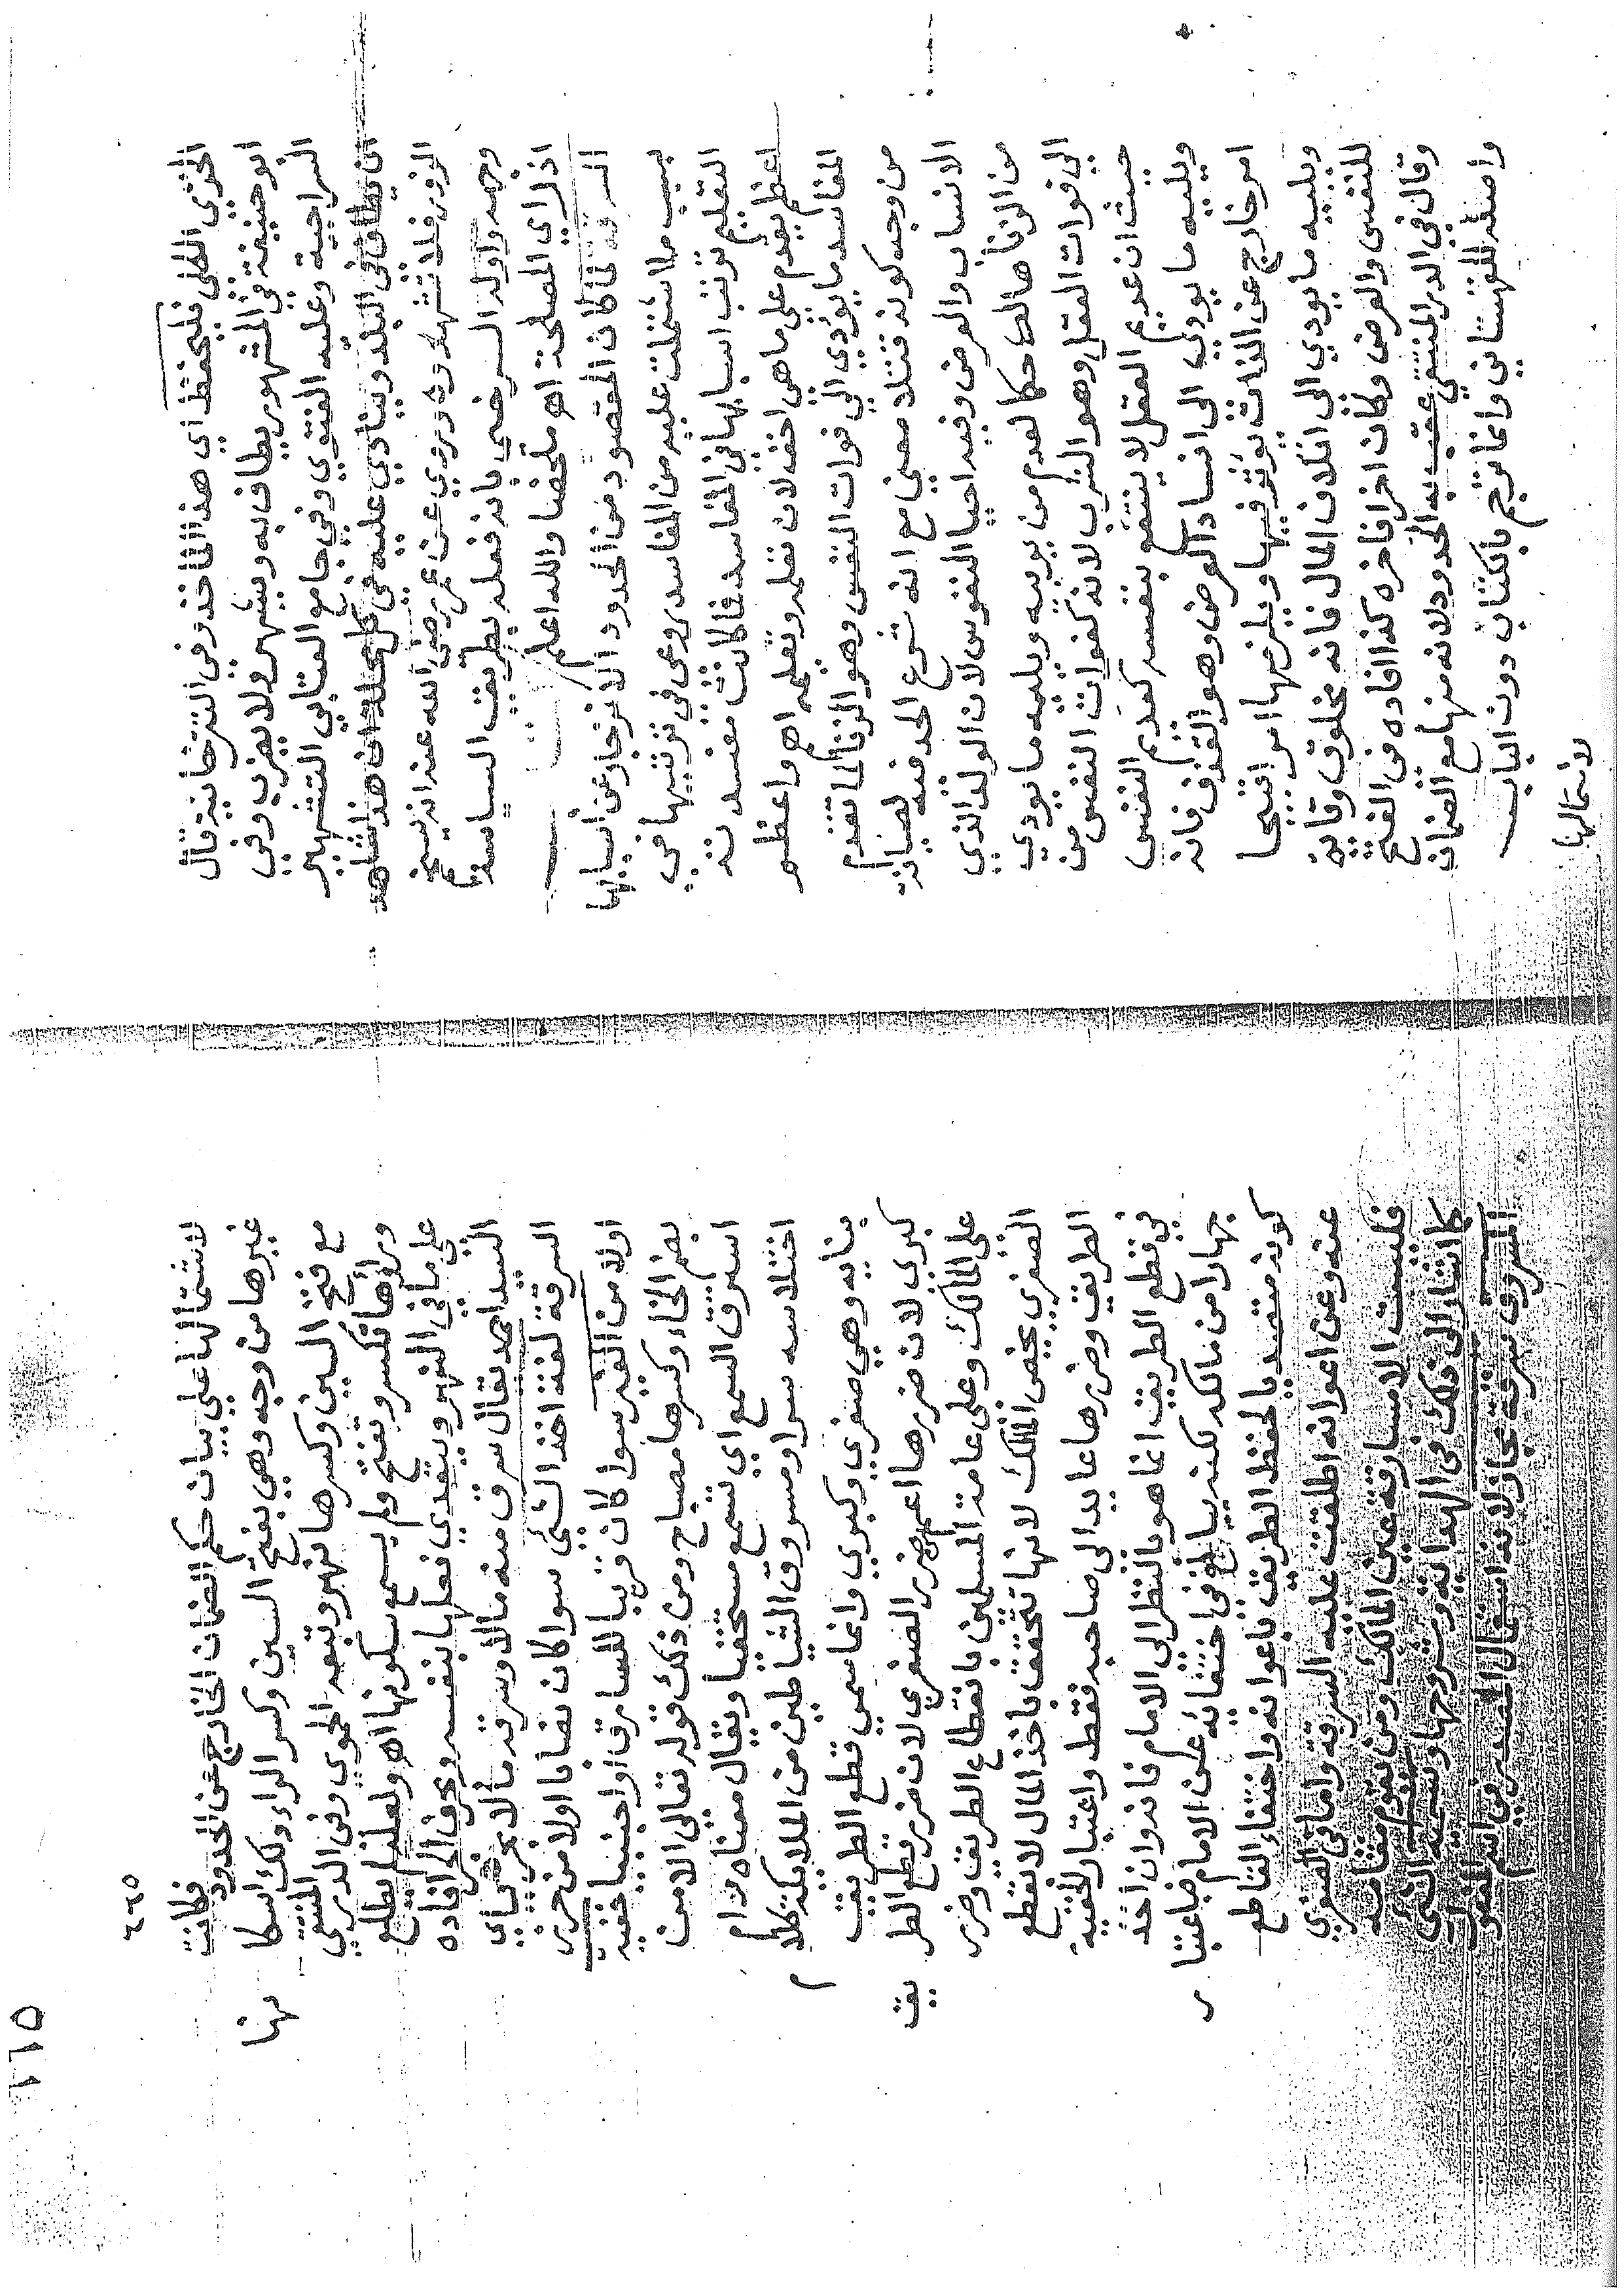 الحرزي المظي فليحفظ اي هذا المأخذ وفي التترخانية قال
ابو حنيفة في المشهور يطاف به ويشهر ولا يضرب وفي
السراجية وعليه الفتوي وفي جامع العتابي التشهير
ان يطاف في البلد وينادي عليه في كل محلة ان هذا شاهد
الزور فلا تشهدوه وروي عن عمر رضي الله عنه انه يسخم
وجهه واوله السرخسي بانه فعله بطريق السياسة
اذا راي المصلحة اهـ ملخصا والله اعلم
السرقة لما كان المقصود من الحدود الانزجار عن اسبابها
بسبب ما اشتملت عليه من المفاسد روعي في ترتيبها في
التعليم ترتيب اسبابها في المفاسد فما كانت مفسدته
اعظم يقدم على ما هي اخف لان تعلمه وتعليمه اهم واعظم
المفاسد ما يؤدي الي فوات النفس وهو الزنا لما تقدم
من وجه كونه قتلا معني مع انه شرع الحد فيه لصيانة
الانساب والعرض وفيه احيا النفوس لان الولد الذي
من الزنا هالك حكما لعدم من يربيه ويليه ما يودي
الي فوات العقل وهو الشرب لانه كفوات النفس من
حيث ان عديم العقل لا ينتفع بنفسه كعديم النفس
ويليه ما يودي الى افساد العرض وهو القذف فانه
امر خارج عن الذات يؤثر فيها ويلزمها امرا قبيحا
ويليه ما يودي الى اتلاف المال فانه مخلوق وقاية
للنفس والعرض وكان اخرا فاخره كذا افاده في الفتح
وقال في الدر المنتقي عقب به الحدود لانه منها مع الضمان
واصله للقهستاني وانما ترجم بالكتاب دون الباب
لاشتمالها
٦٦٥
لاشتمالها علي بيان حكم الضمان الخارج عن الحدود فكانت
غيرها من وجه وهي بفتح السين وكسر الراء ولك اسكانها
مع فتح السين وكسرها نهر وتبعه الحموي وفي الدر المنتقي
وراؤها تكسر وتفتح ولم يسمع سكونها اهـ ولعله لم يطلع
على ما في النهر ويتعدي فعلها بنفسه وبحرف الجر افاده
السيد احمد يقال سرق منه مالا وسرقه مالا بحر
السرقة لغة اخذ الشئ سوا كان نصابا اولا من حرز
اولا من الغير سوا كان قريبا للسارق او اجنبيا خفية
بضم الخاء وكسرها مصباح ومن ذلك قوله تعالى الا من
استرق السمع اي تسمع مستخفيا ويقال معناه رام
اختلاسه سرا ومسروق الشياطين من الملائكة كلام
يتأبه وهي صغري وكبري وانما سمي قطع الطريق
كبري لان ضررها اعم من ضرر الصغري لان ضرر قطع الطريق
على المالك وعلى عامة المسلمين بانقطاع الطريق وضرر
الصغري يخص المالك لانها تتحقق باخذ المال لا بقطع
الطريق وضررها عايد الى صاحبه فقط واعتبار الخفية
في قطع الطريق انما هو بالنظر الى الامام فانه وان اخذ
جهارا من مالكه لكنه يبالغ في اختفائه على الامام فباعتبار
كونه متصديا لحفظ الطريق باعوانه واختفاء القاطع
عنه وعن اعوانه اطلقت عليه السرقة واما في الصغري
فليست الا مسارقة عين المالك ومن يقوم مقامه
كما اشار الى ذلك في الهداية وشروحها وتسمية الشئ
المسروق سرقة مجاز لانه استعمال المصدر في اسم المفعول